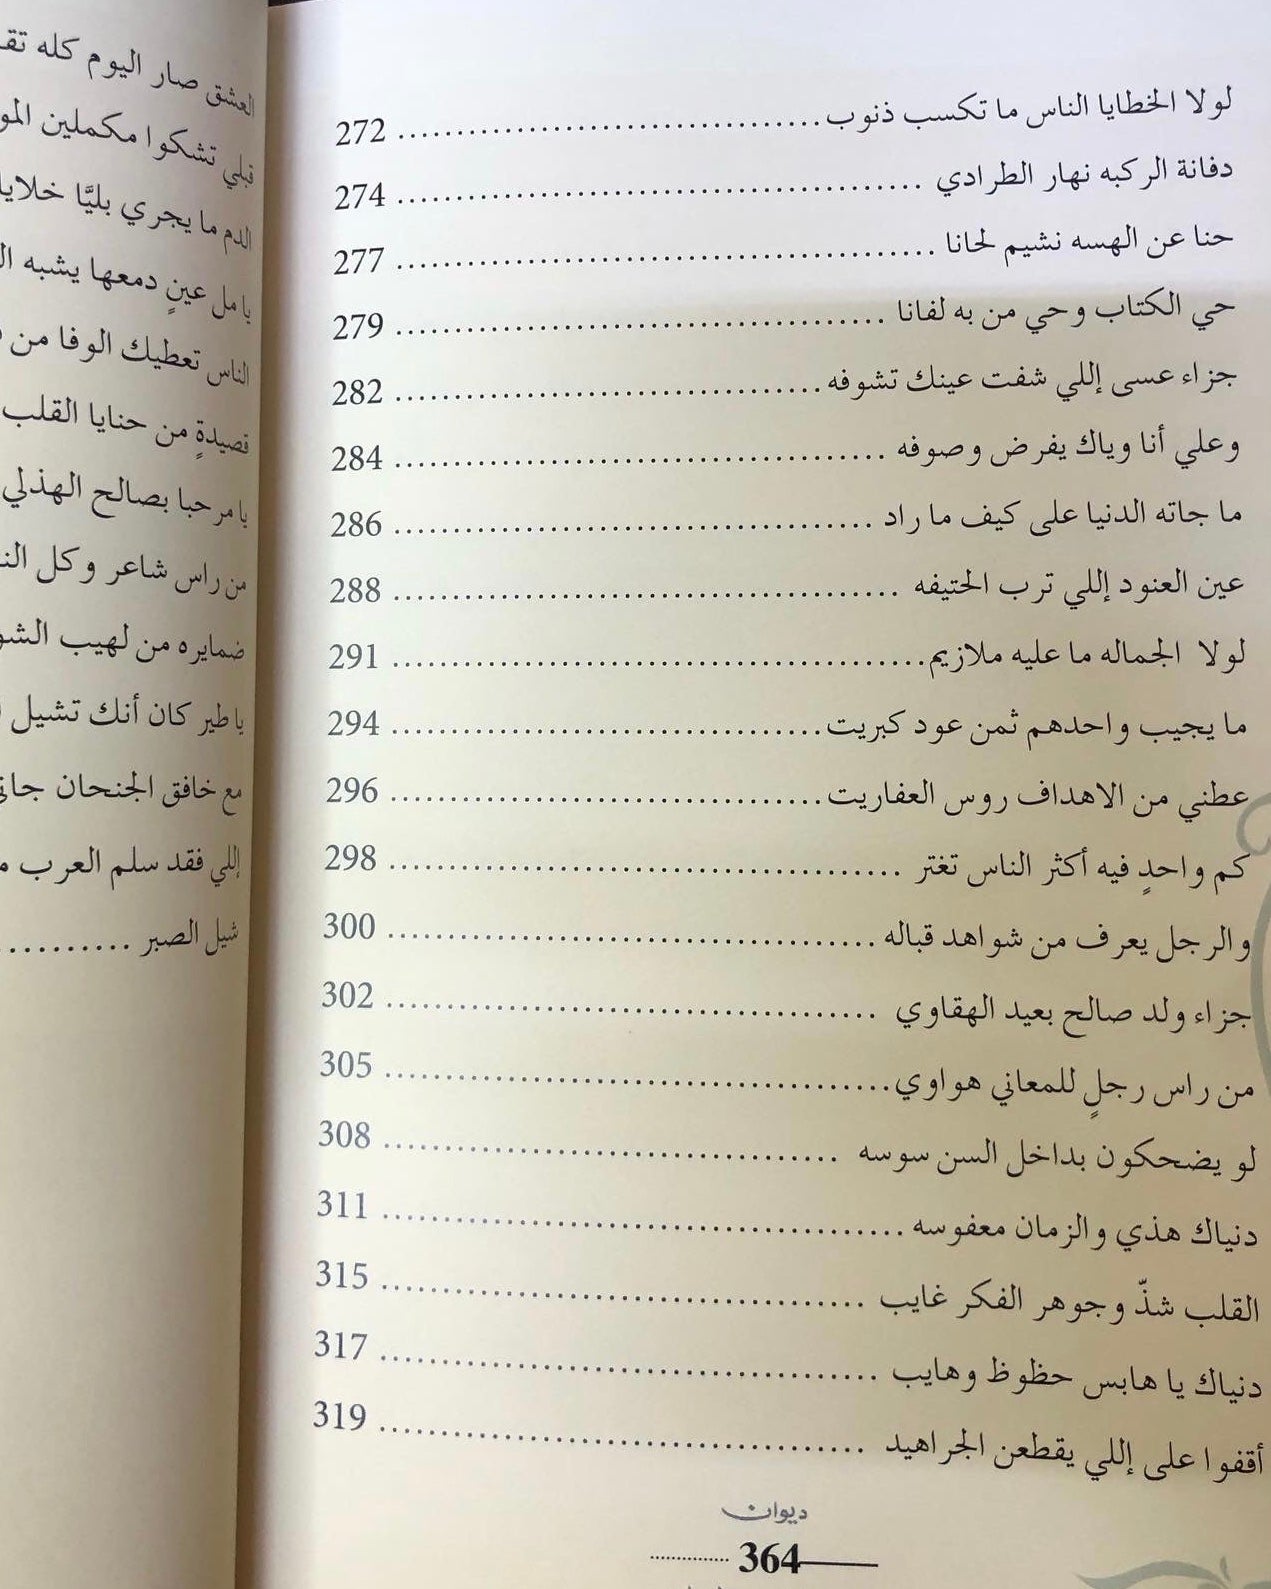 لولا الخطايا الناس ما تكسب ذنوب ........................................ 272
دفانة الركبه نهار الطرادي ........................................ 274
حنا عن الهسه نشيم لحانا ........................................ 277
حي الكتاب وحي من به لفانا ........................................ 279
جزاء عسى إللي شفت عينك تشوفه ........................................ 282
وعلي أنا وياك يفرض وصوفه ........................................ 284
ما جاته الدنيا على كيف ما راد ........................................ 286
عين العنود إللي ترب الحتيفه ........................................ 288
لولا الجماله ما عليه ملازيم ........................................ 291
ما يجيب واحدهم ثمن عود كبريت ........................................ 294
عطني من الاهداف روس العفاريت ........................................ 296
كم واحدٍ فيه أكثر الناس تغتر ........................................ 298
والرجل يعرف من شواهد قباله ........................................ 300
جزاء ولد صالح بعيد الهقاوي ........................................ 302
من راس رجلٍ للمعاني هواوي ........................................ 305
لو يضحكون بداخل السن سوسه ........................................ 308
دنياك هذي والزمان معفوسه ........................................ 311
القلب شذّ وجوهر الفكر غايب ........................................ 315
دنياك يا هابس حظوظ وهايب ........................................ 317
أقفوا على إللي يقطعن الجراهيد ........................................ 319
ديوان
364
العشق صار اليوم كله
قبلي تشكوا مكملين
الدم ما يجري بليَّا
يا مل عينٍ دمعها يشبه
الناس تعطيك الوفا من
قصيدةٍ من حنايا القلب
يا مرحبا بصالح الهذلي
من راس شاعر وكل
ضمايره من لهيب
يا طير كان أنك تشيل
مع خافق الجنحان
إللي فقد سلم العرب
شيل الصبر ..........